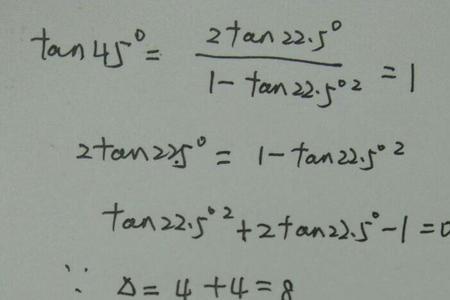 tan45°= 2tan22.5° / 1-tan22.5°² =1
2tan22.5° = 1-tan22.5°²
tan22.5°²+2tan22.5°-1=0
∵ Δ= 4+4=8